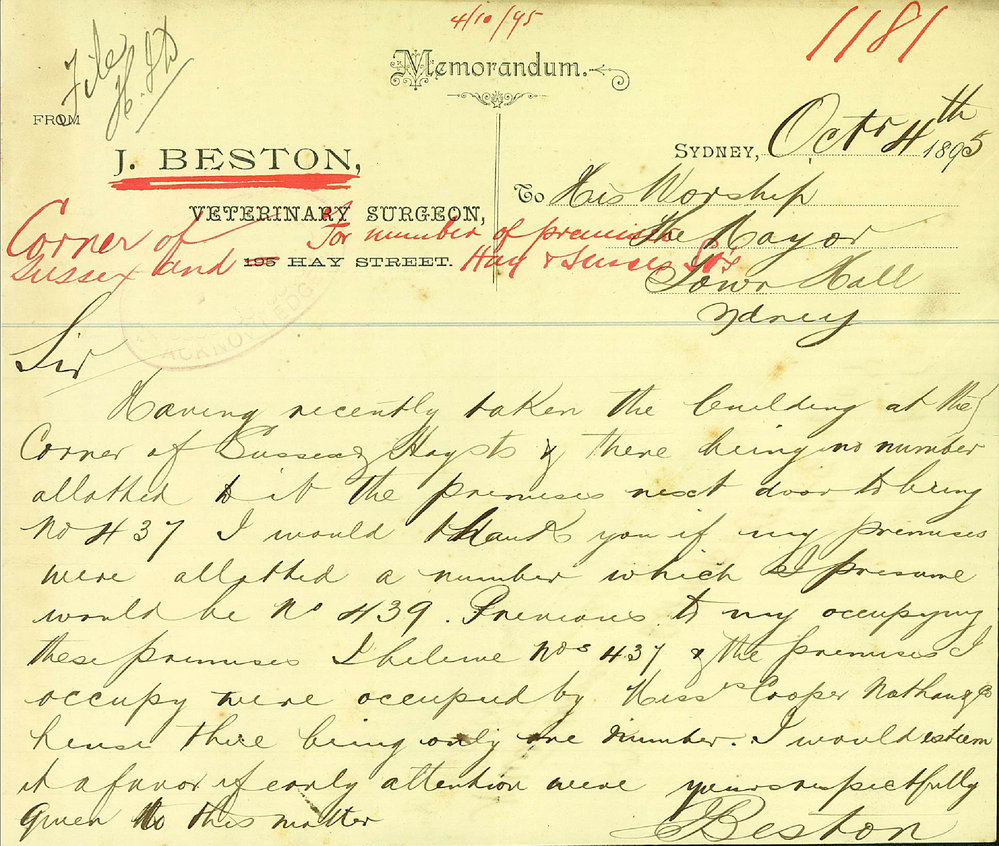 4/10/95
1181
File
Memorandum.
FROM
J. BESTON,
VETERINARY SURGEON,
195 HAY STREET.
Corner of
Sussex and
For number of premises
Hay & Sussex Sts
SYDNEY, Octr 4th 1895
To His Worship
The Mayor
Town Hall
Sydney
Sir
Having recently taken the building at the
Corner of Sussex & Hay sts & there being no number
allotted to it the premises next door to being
No 437 I would thank you if my premises
were allotted a number which I presume
would be No 439. Previous to my occupying
these premises I beleive Nos 437 & the premises I
occupy were occupied by Messrs Cooper Nathan & Co
hense there being only one number. I would esteem
it a favor if early attention were
given to this matter
yours respectfully
J Beston